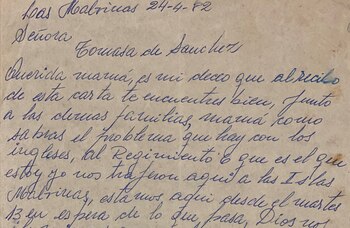 Las Malvinas 24-4-82
Señora
Tomasa de Sanchez
Querida mamá, es mi deceo que al recibo
de esta carta te encuentres bien, junto
a las demas familias, mamá como
sabras el problema que hay con los
ingleses, al Regimiento 6 que es el que
estoy yo nos trajeron aqui a las Islas
Malvinas, estamos, aqui desde el martes
13 en espera de lo que pasa, Dios nos